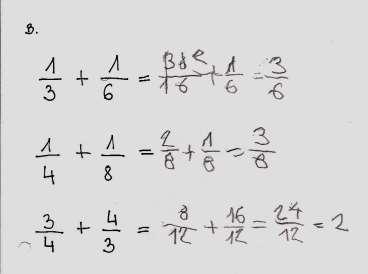 B.
1/3 + 1/6 = + 1/6 = 3/6
1/4 + 1/8 = 2/8 + 1/8 = 3/8
3/4 + 4/3 = 8/12 + 16/12 = 24/12 = 2